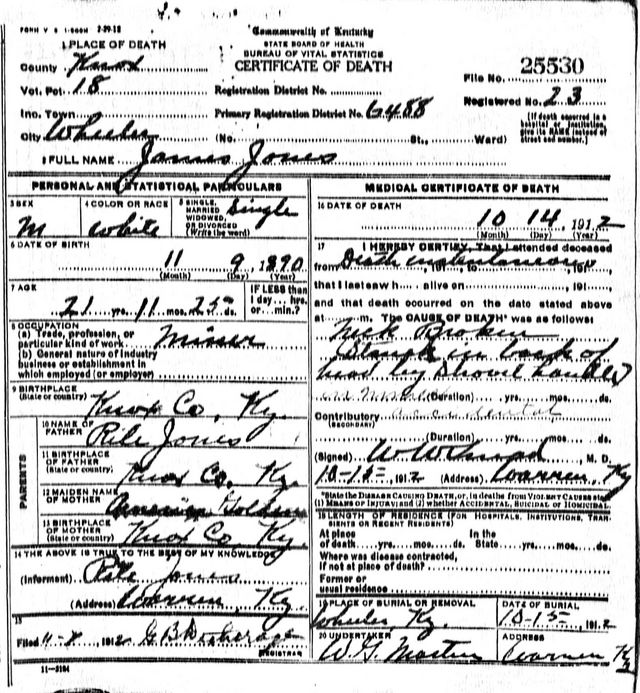 FORM V S 1-500M 7-29-12
Commonwealth of Kentucky
STATE BOARD OF HEALTH
BUREAU OF VITAL STATISTICS
CERTIFICATE OF DEATH
1 PLACE OF DEATH
County Knox
Vot. Pct. 18
Inc. Town
City Wheeler
Registration District No.
Primary Registration District No. 6488
(No. St., Ward)
File No. 25530
Registered No. 23
(If death occurred in a hospital or institution, give its NAME instead of street and number.)
2 FULL NAME James Jones
PERSONAL AND STATISTICAL PARTICULARS
3 SEX M
4 COLOR OR RACE white
5 SINGLE, MARRIED WIDOWED, OR DIVORCED (Write the word) Single
6 DATE OF BIRTH
11 9 1890
(Month) (Day) (Year)
7 AGE
21 yrs. 11 mos. 25 ds.
IF LESS than 1 day... hrs. or min.?
8 OCCUPATION
(a) Trade, profession, or particular kind of work Miner
(b) General nature of industry business or establishment in which employed (or employer)
9 BIRTHPLACE
(State or country) Knox Co, Ky.
PARENTS
10 NAME OF FATHER Rile Jones
11 BIRTHPLACE OF FATHER
(State or country) Knox Co. Ky.
12 MAIDEN NAME OF MOTHER
13 BIRTHPLACE OF MOTHER
(State or country) Knox Co. Ky.
14 THE ABOVE IS TRUE TO THE BEST OF MY KNOWLEDGE
(Informent) Rile Jones
(Address) Warren, Ky.
15
Filed 11-8, 1912 G B
REGISTRAR
11-3184
MEDICAL CERTIFICATE OF DEATH
16 DATE OF DEATH
10 14, 1912
(Month) (Day) (Year)
17 I HEREBY CERTIFY, That I attended deceased
from Death instantaneous, 191, to, 191,
that I last saw h alive on, 191
and that death occurred on the date stated above
at m. The CAUSE OF DEATH* was as follows:
Neck Broken
in back of
head by Shovel handle
in (Duration) yrs. mos. ds.
Contributory accidental
(SECONDARY)
(Duration) yrs. mos. ds.
(Signed) M. D.
10-15, 1912 (Address) Warren, Ky
*State the DISEASE CAUSING DEATH, or, in deaths from VIOLENT CAUSES state (1) MEANS OF INJURY; and (2) whether ACCIDENTAL, SUICIDAL OR HOMICIDAL.
18 LENGTH OF RESIDENCE (FOR HOSPITALS, INSTITUTIONS, TRANSIENTS OR RECENT RESIDENTS)
At place of death yrs. mos. ds. In the State yrs. mos. ds.
Where was disease contracted,
if not at place of death?
Former or
usual residence
19 PLACE OF BURIAL OR REMOVAL
Wheeler, Ky.
DATE OF BURIAL
10-15, 1912
20 UNDERTAKER
W. G. Martin
ADDRESS
Warren Ky